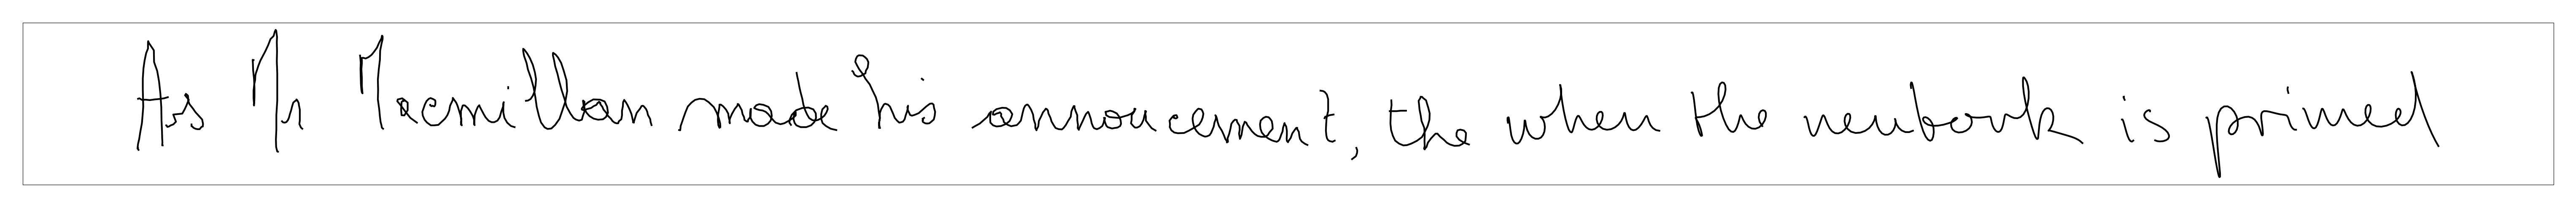 As Mr Macmillan made his announcement, the when the network is primed